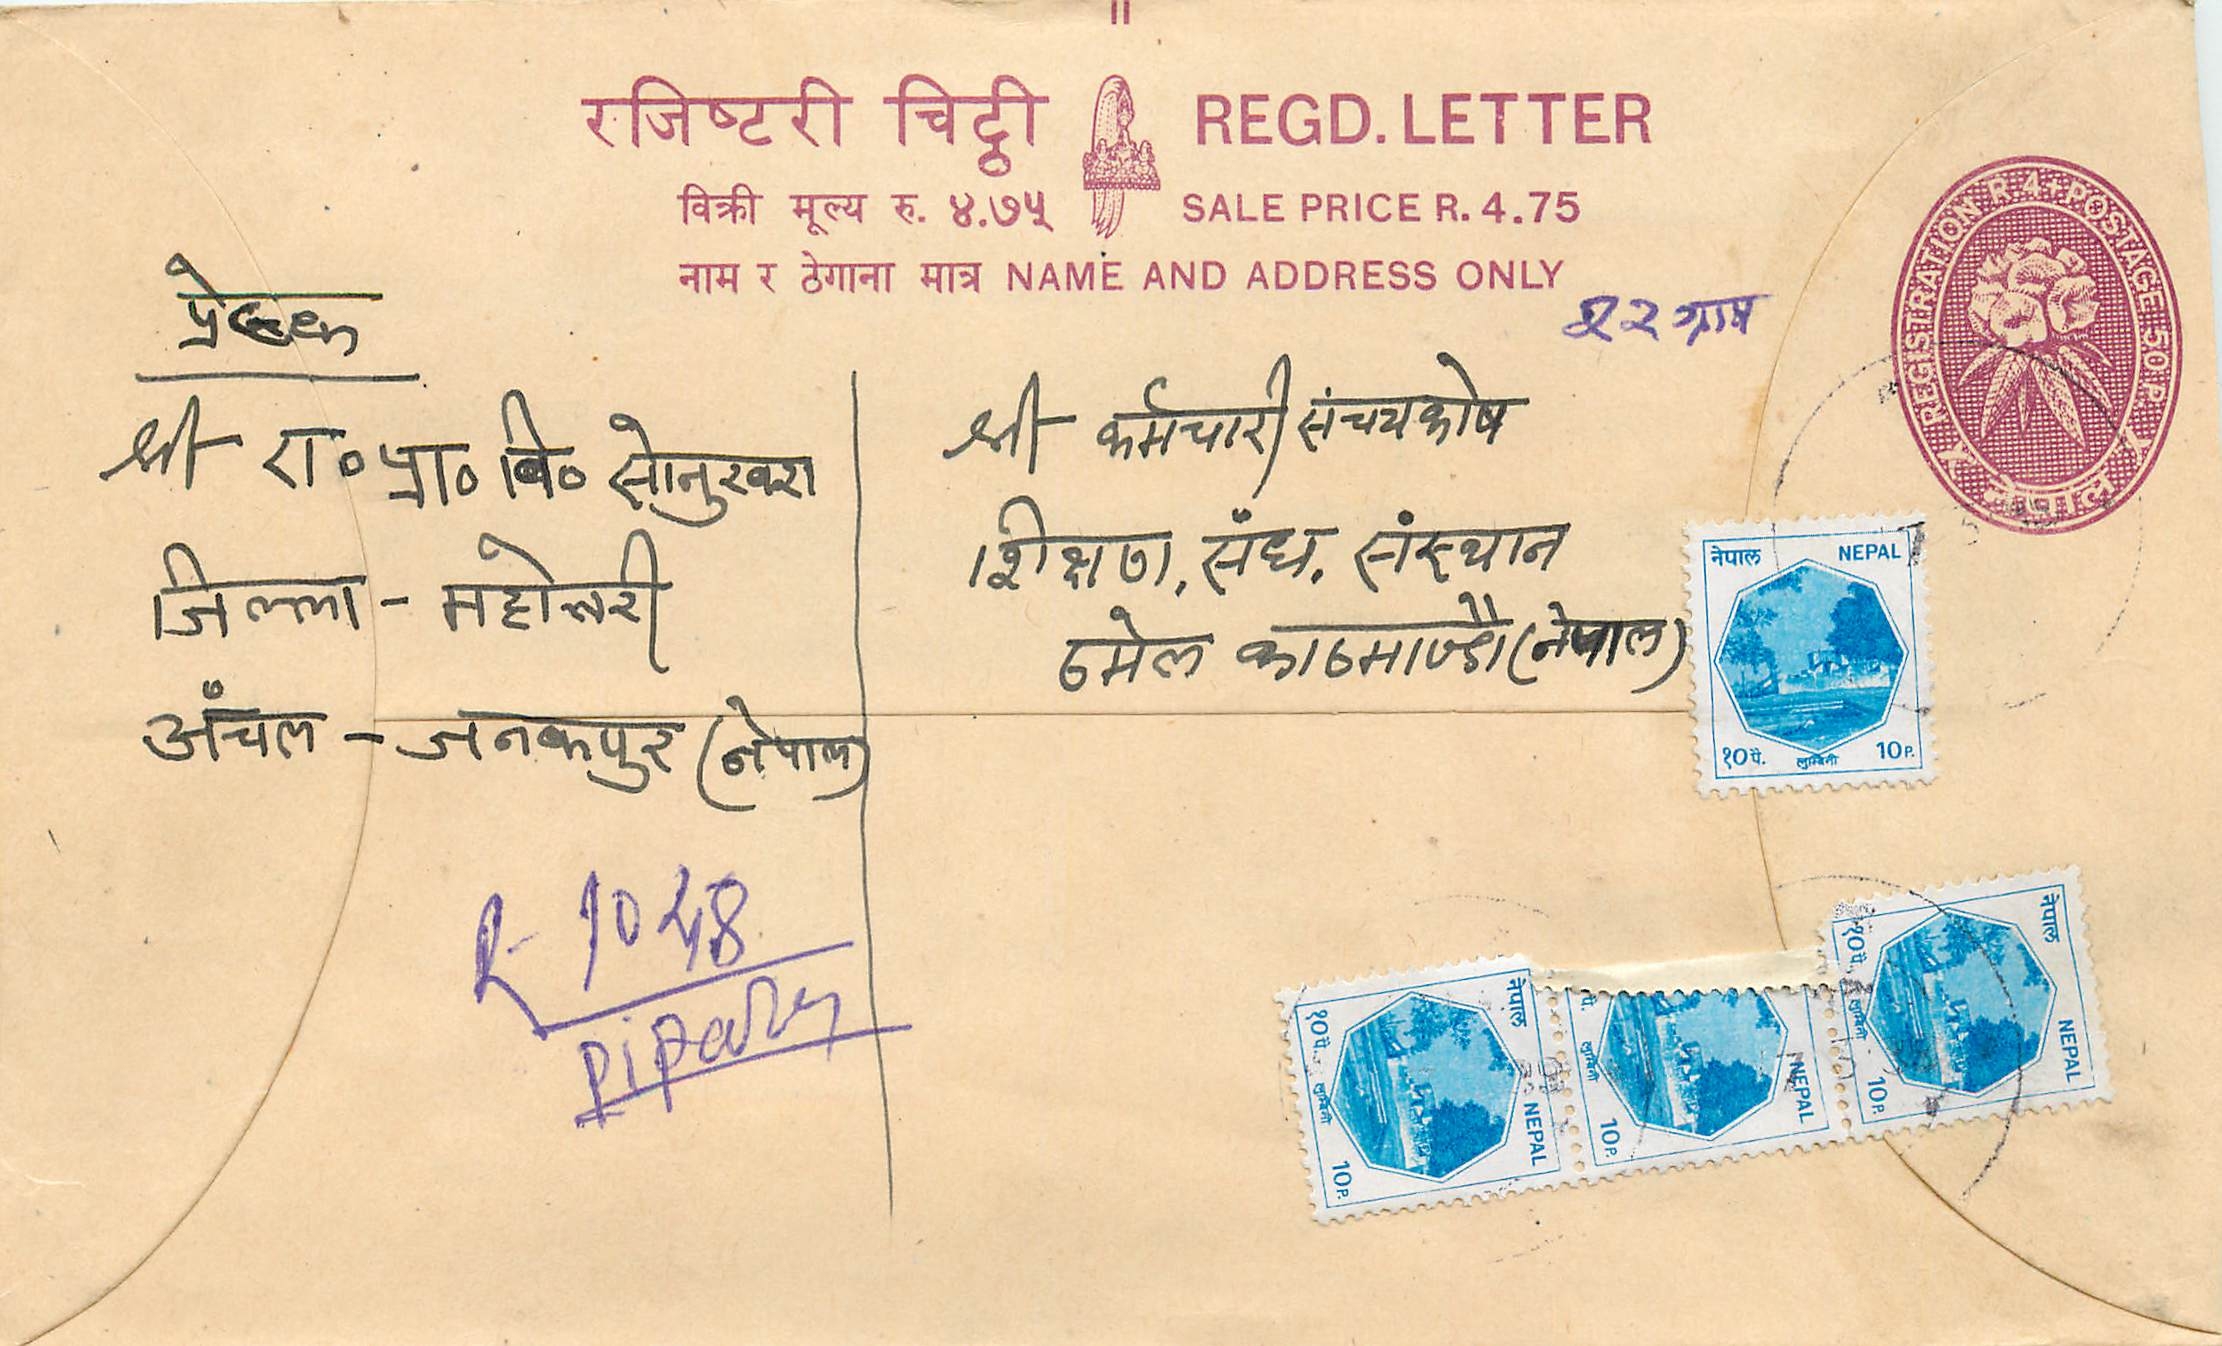 रजिष्टरी चिट्ठी REGD. LETTER
विक्री मूल्य रु. ४.७५ SALE PRICE R. 4.75
नाम र ठेगाना मात्र NAME AND ADDRESS ONLY
REGISTRATION R 4 + POSTAGE 50 P.
नेपाल
२२ ग्राम
प्रेषक
श्री रा० प्रा० वि० सोनुरवरा
जिल्ला - महोत्तरी
अँचल - जनकपुर (नेपाल)
श्री कर्मचारी संचयकोष
शिक्षण, सँघ, संस्थान
ठमेल काठमाण्डौ (नेपाल)
R- 1048
Pipara
नेपाल NEPAL
१० पै. लुम्बिनी 10 P.
नेपाल NEPAL
१० पै. लुम्बिनी 10 P.
NEPAL
पै. लुम्बिनी 10 P.
नेपाल NEPAL
१० पै. लुम्बिनी 10 P.